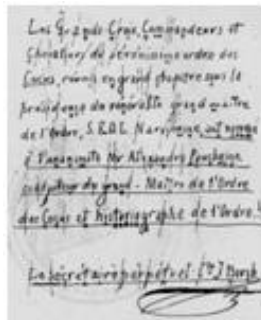 Les Grands-Croix, Commandeurs et
Chevaliers du sérénissime ordre des
Cocus, réunis en grand chapitre sous la
présidence du vénérable grand-maître
de l'Ordre, S.E.D.L. Narychkine, ont nommé
à l'unanimité Mr Alexandre Pouchkine
coadjuteur du grand-Maître de l'Ordre
des Cocus et historiographe de l'Ordre.
Le secrétaire perpétuel: Borch